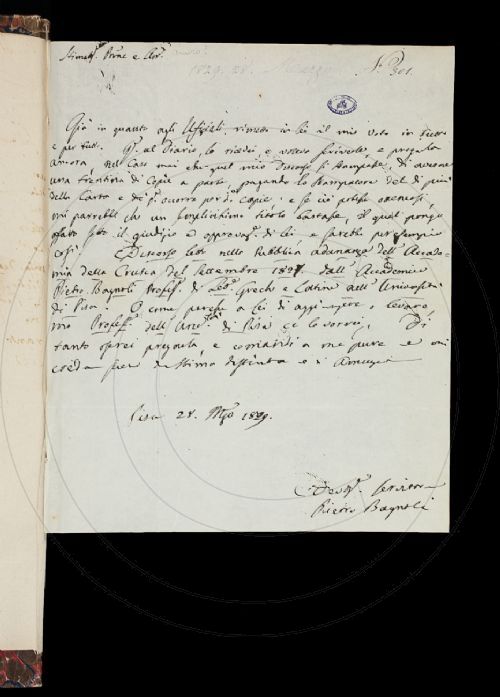 Stimat. Prne e Am.
1829. 28. Marzo
N. 301.
Già in quanto agli Uffiziali, rimetto in lei il mio Voto in tutto
e per tutto. al Diario, lo riceverei e volentieri e pregarla
ancora nel Caso mai che quel mio Discorso si stampasse, di averne
una trentina di Copie a parte, pagando lo Stampatore del di più
della Carta e occorra per d. Copie: e se ciò potesse ottenersi,
mi parrebbe che un semplicissimo titolo bastasse, il qual pongo
sotto il giudizio e approvaz. di lei e sarebbe per esempio
così. Discorso letto nella Pubblica adunanza dell' Accade-
mia della Crusca del Settembre 1827. dall' Accademico
Pietro Bagnoli Profess. di Greche e Latine nell' Università
di Pisa. O come paresse a lei di aggiungere, o levare
ma Profess. dell' Univ. di Pisa ce lo vorrei, Di
tanto oserei pregarla, e comandi a me pure e mi
creda pien di stima distinta e d'
Pisa 28. Mzo 1829.
Devot. Servitore
Pietro Bagnoli